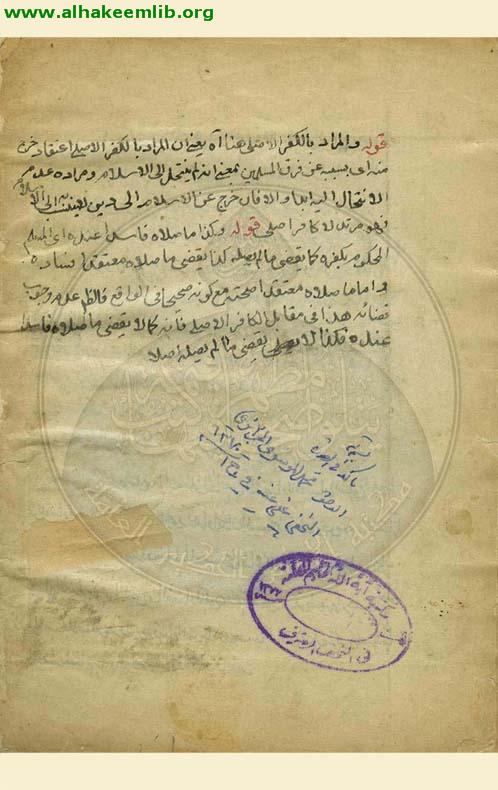 www.alhakeemlib.org
قوله والمراد بالكفر الاصلي هنا اه يعني ان المراد بالكفر الاصلي اعتقاد خرج
منه اى بسببه عن فرق المسلمين بمعنى انه لم ينتحل الى الاسلام ومراده عدم
الانتحال اليه ابدا والا فان خرج عن الاسلام الى دين لا ينتسب الى الاسلام
فهو مرتد لا كافر اصلي قوله وكذا ما صلاه فاسدا عنده اى المسلم
المحكوم بكفره كما يقضى ما لم يصله كذا يقضى ما صلاه معتقدا فساده
واما ما صلاه معتقدا صحته مع كونه صحيحا في الواقع فالظاهر عدم وجوب
قضائه هذا في مقابل الكافر الاصلي فانه كما لا يقضى ما صلاه فاسدا
عنده فكذا لا يقضى ما لم يصله اصلا
في النجف الاشرف